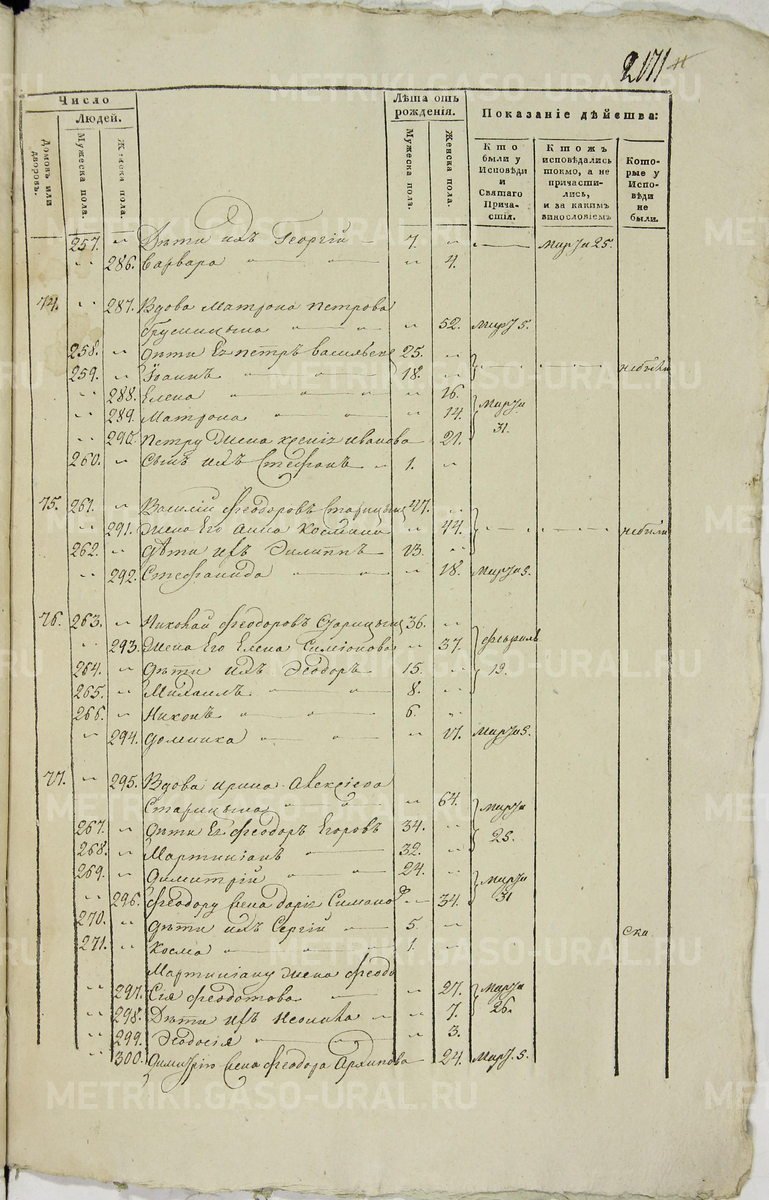 2171
Число
Людей.
Домовъ или дворовъ.
Мужеска пола.
Женска пола.
Лѣта отъ рожденія.
Мужеска пола.
Женска пола.
Показаніе дѣйства:
Кто были у Исповѣди и Святаго Причастія.
Ктожъ исповѣдались токмо, а не причастились, и за какимъ винословіемъ
Которые у Исповѣди не были.
257. Дѣти ихъ Георгій 7. Марта 25.
286. Варвара 4.
74. 287. Вдова Матрона Петрова
52. Марта 5.
258. Дѣти Ея Петръ 25.
259. Іоаннъ 18. небыли
288. Елена 16. Марта
289. Матрона 14. 31.
290. Петру Жена Иванова 21.
260. Сынъ ихъ Стефанъ 1.
75. 261. Василій Феодоровъ Старицынъ 47.
291. Жена Его Анна Космина 44. небыли
262. Дѣти ихъ Филиппъ 13.
292. Стефанида 18. Марта 5.
76. 263. Николай Феодоровъ Старицынъ 36.
293. Жена Его Елена Симіонова 37. февраля
264. Дѣти ихъ Феодоръ 15. 19.
265. Михаилъ 8.
266. Никонъ 6.
294. Домника 17. Марта 5.
77. 295. Вдова Ирина Алексіева
Старицына 64. Марта
267. Дѣти Ея Феодоръ Егоровъ 34. 25.
268. Мартиніанъ 32.
269. Димитрій 24. Марта
296. Феодору Жена Дарія 34. 31
270. Дѣти ихъ Сергій 5.
271. Косма 1.
Мартиніану Жена Феодо
297. сія Феодотова 27. Марта
298. Дѣти ихъ Неонила 7. 26.
299. Феодосія 3.
300. Димитрію Жена Феодора Архипова 24. Марта 5.
METRIKI.GASO-URAL.RU